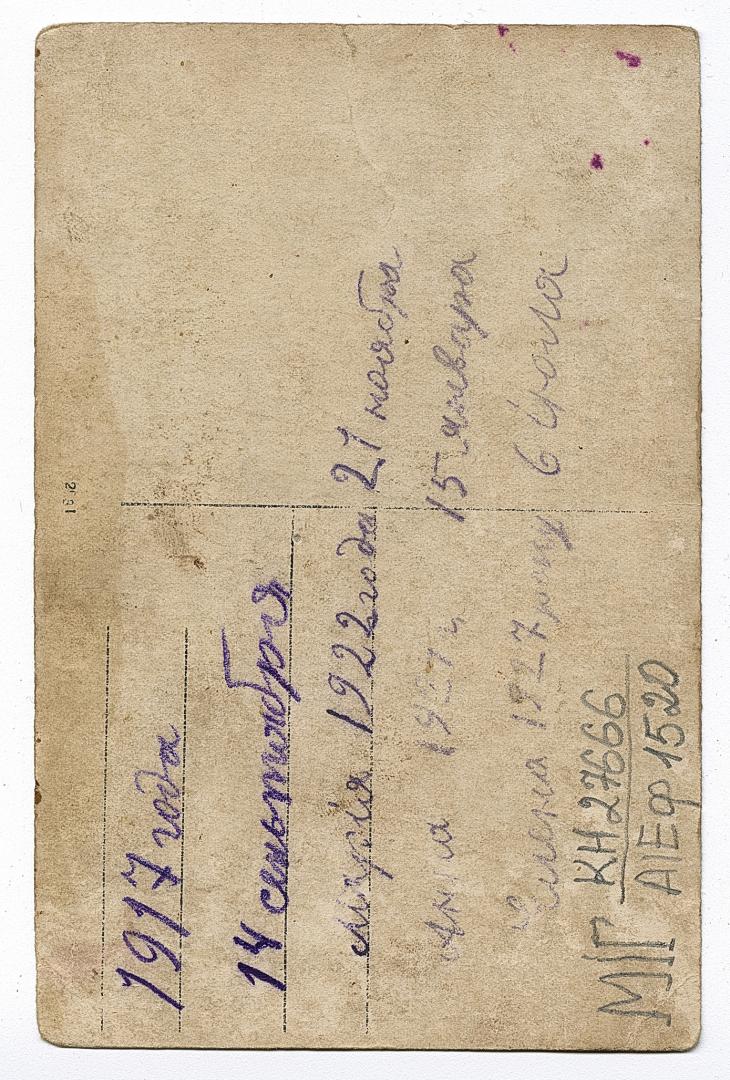 1917 года
14 сеньтиября
Марфія 1922 года 21 ноября
Анна 15 января
Елена 1927 року 6 Июля
МІГ КН 27666
АІЕФ 1520